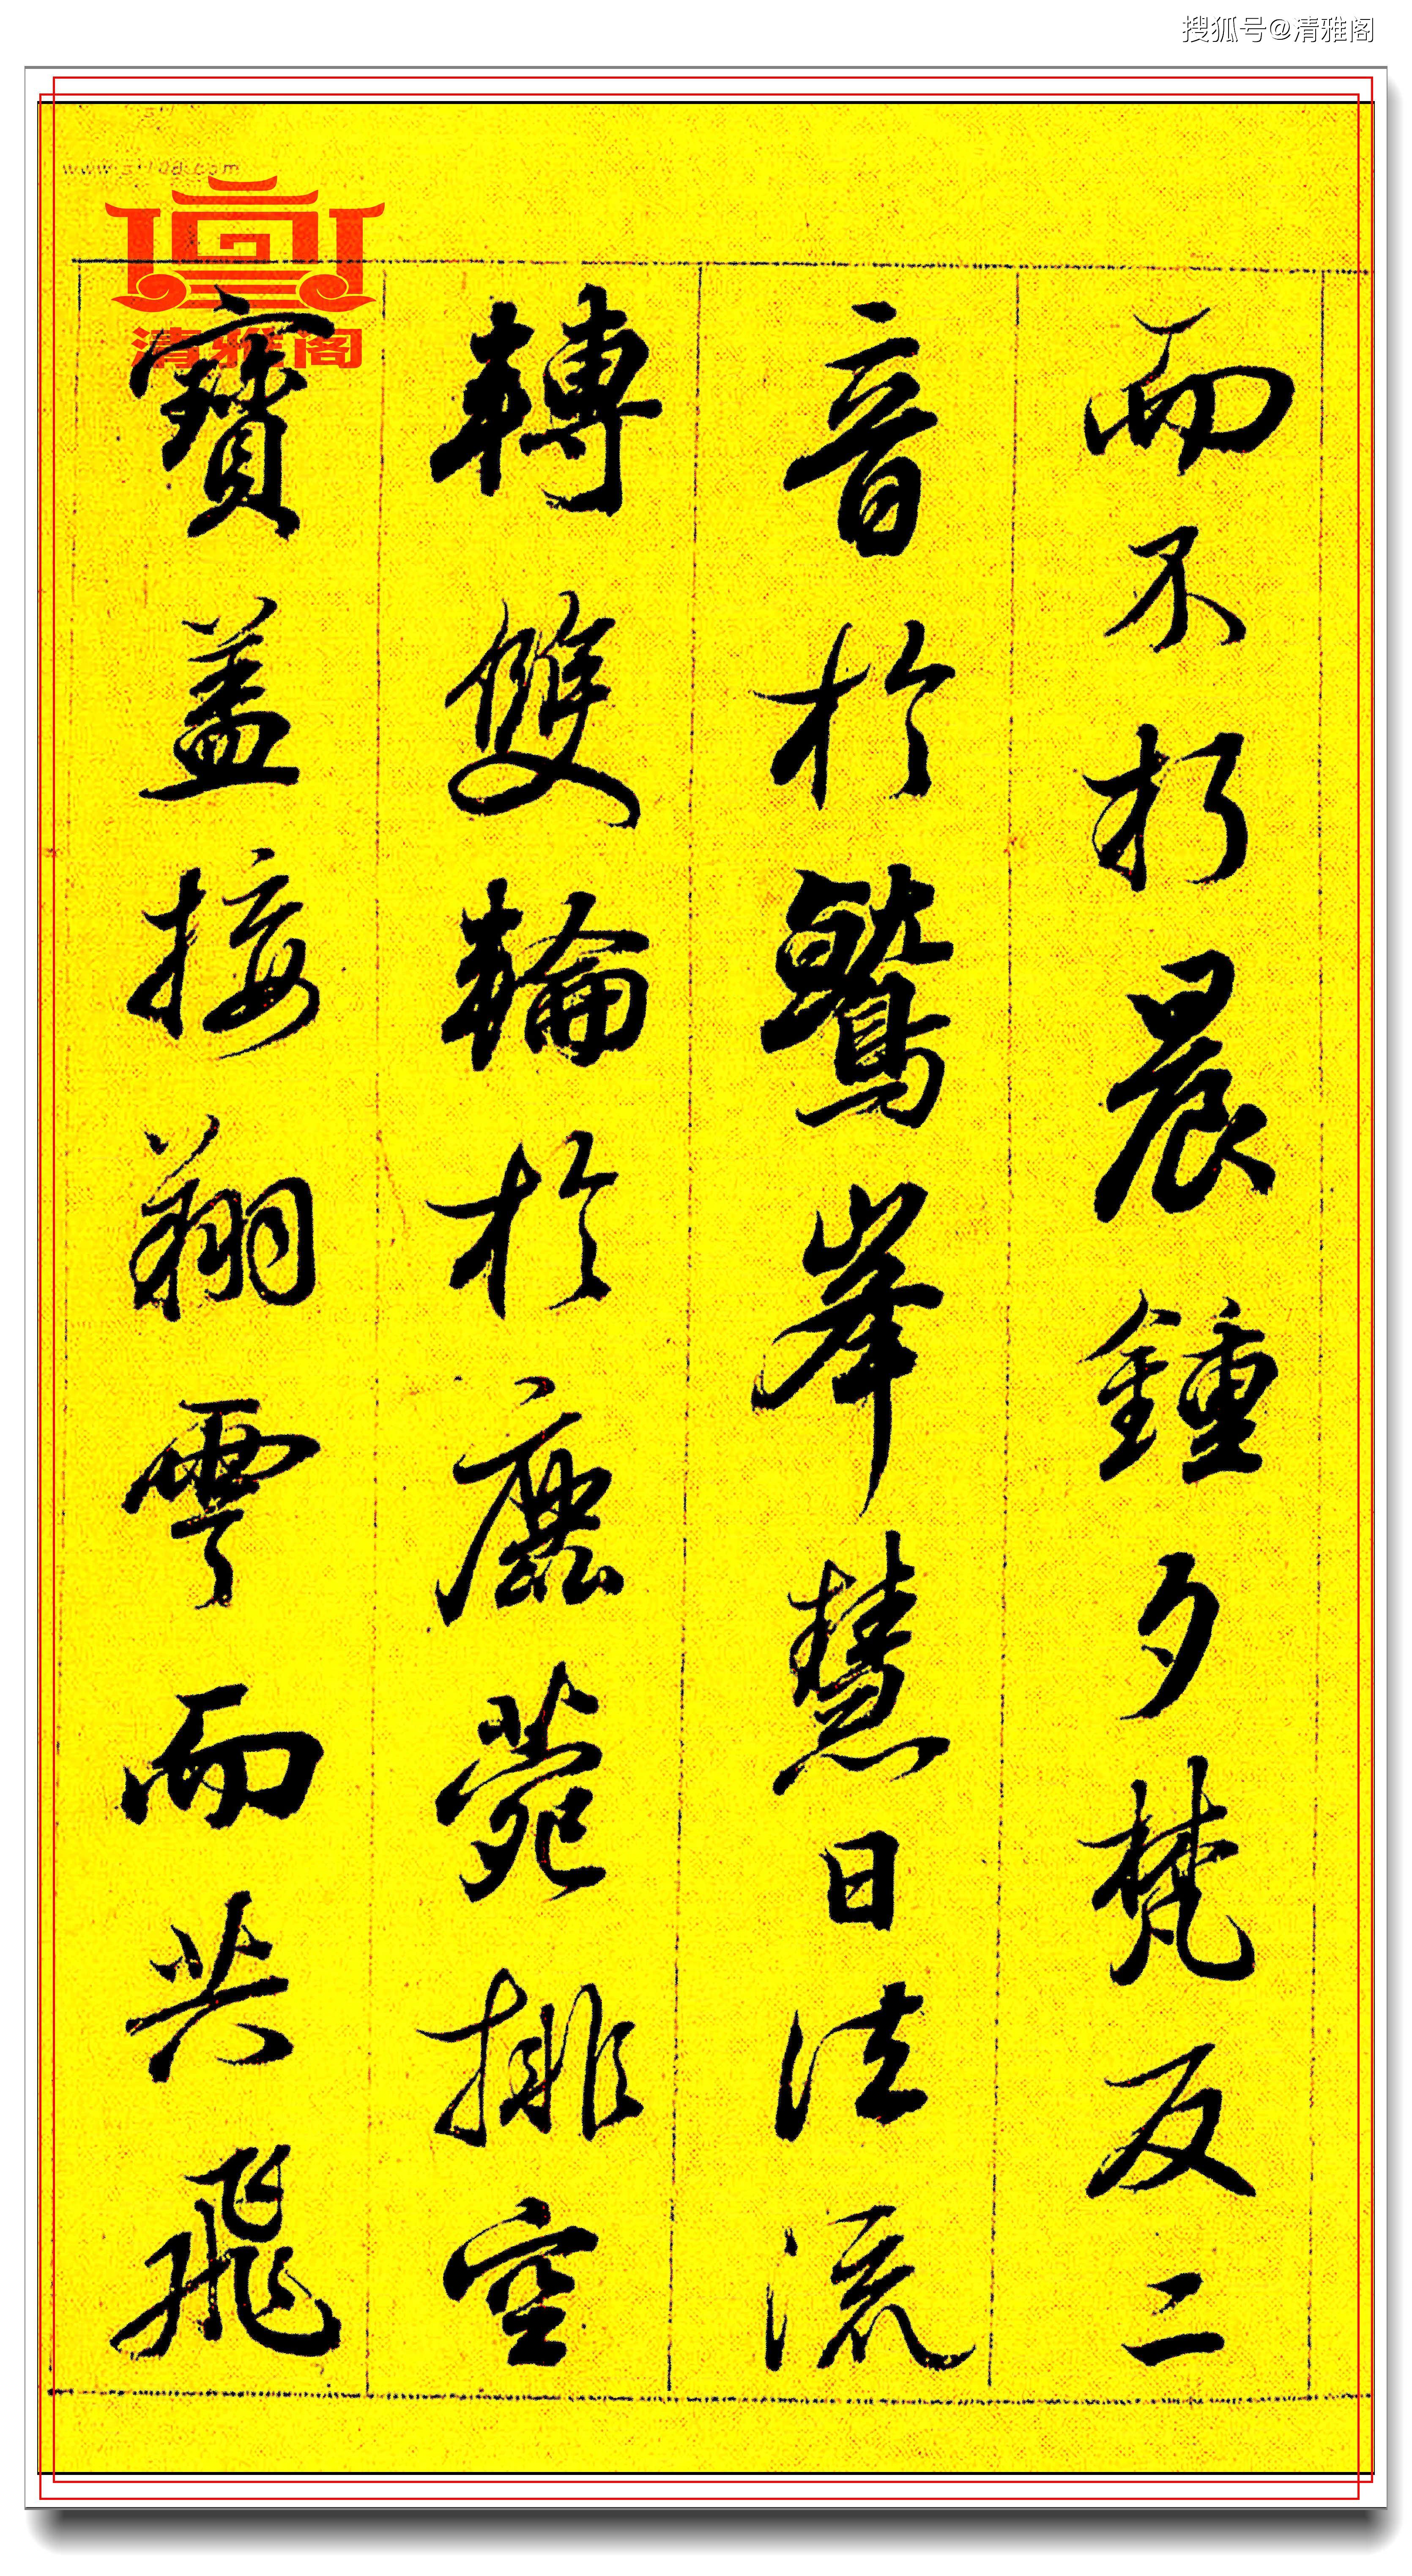 搜狐号@清雅阁
清雅阁
而不朽晨鍾夕梵交二
音於鷲峯慧日法流
轉雙輪於鹿菀排空
寶盖接翔雲而共飛